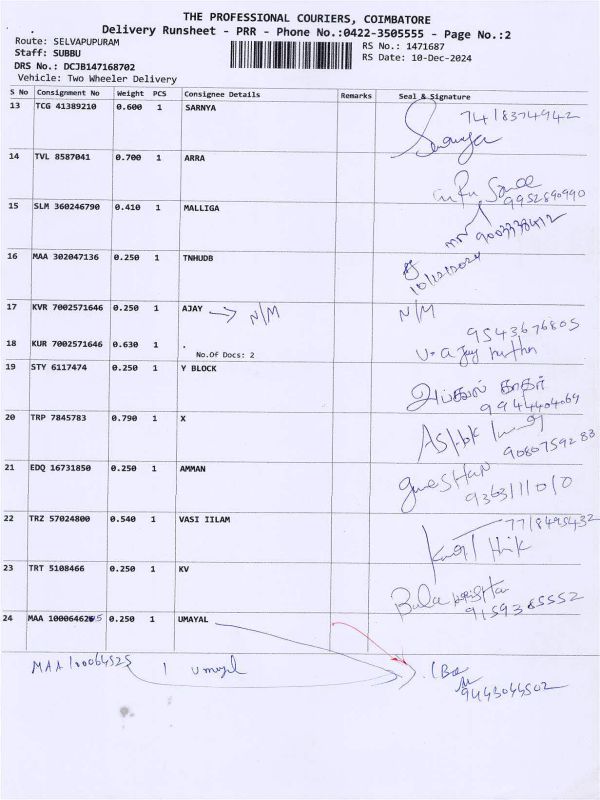 THE PROFESSIONAL COURIERS, COIMBATORE
Delivery Runsheet - PRR - Phone No.:0422-3505555 - Page No.:2
Route: SELVAPUPURAM
Staff: SUBBU
DRS No.: DCJB147168702
Vehicle: Two Wheeler Delivery
RS No.: 1471687
RS Date: 10-Dec-2024
S No Consignment No Weight PCS Consignee Details Remarks Seal & Signature
13 TCG 41389210 0.600 1 SARNYA 7418374942
14 TVL 8587041 0.700 1 ARRA
9952890990
15 SLM 360246790 0.410 1 MALLIGA
16 MAA 302047136 0.250 1 TNHUDB
10/12/2024
17 KVR 7002571646 0.250 1 AJAY → N/M N/M
9543676805
18 KUR 7002571646 0.630 1 .
No.Of Docs: 2
19 STY 6117474 0.250 1 Y BLOCK
9944404069
20 TRP 7845783 0.790 1 X
9080759283
21 EDQ 16731850 0.250 1 AMMAN
9363111010
22 TRZ 57024800 0.540 1 VASI IILAM
7718495432
23 TRT 5108466 0.250 1 KV
9159385552
24 MAA 1000646 0.250 1 UMAYAL
MAA 100064525 1 Umayl
9443044502